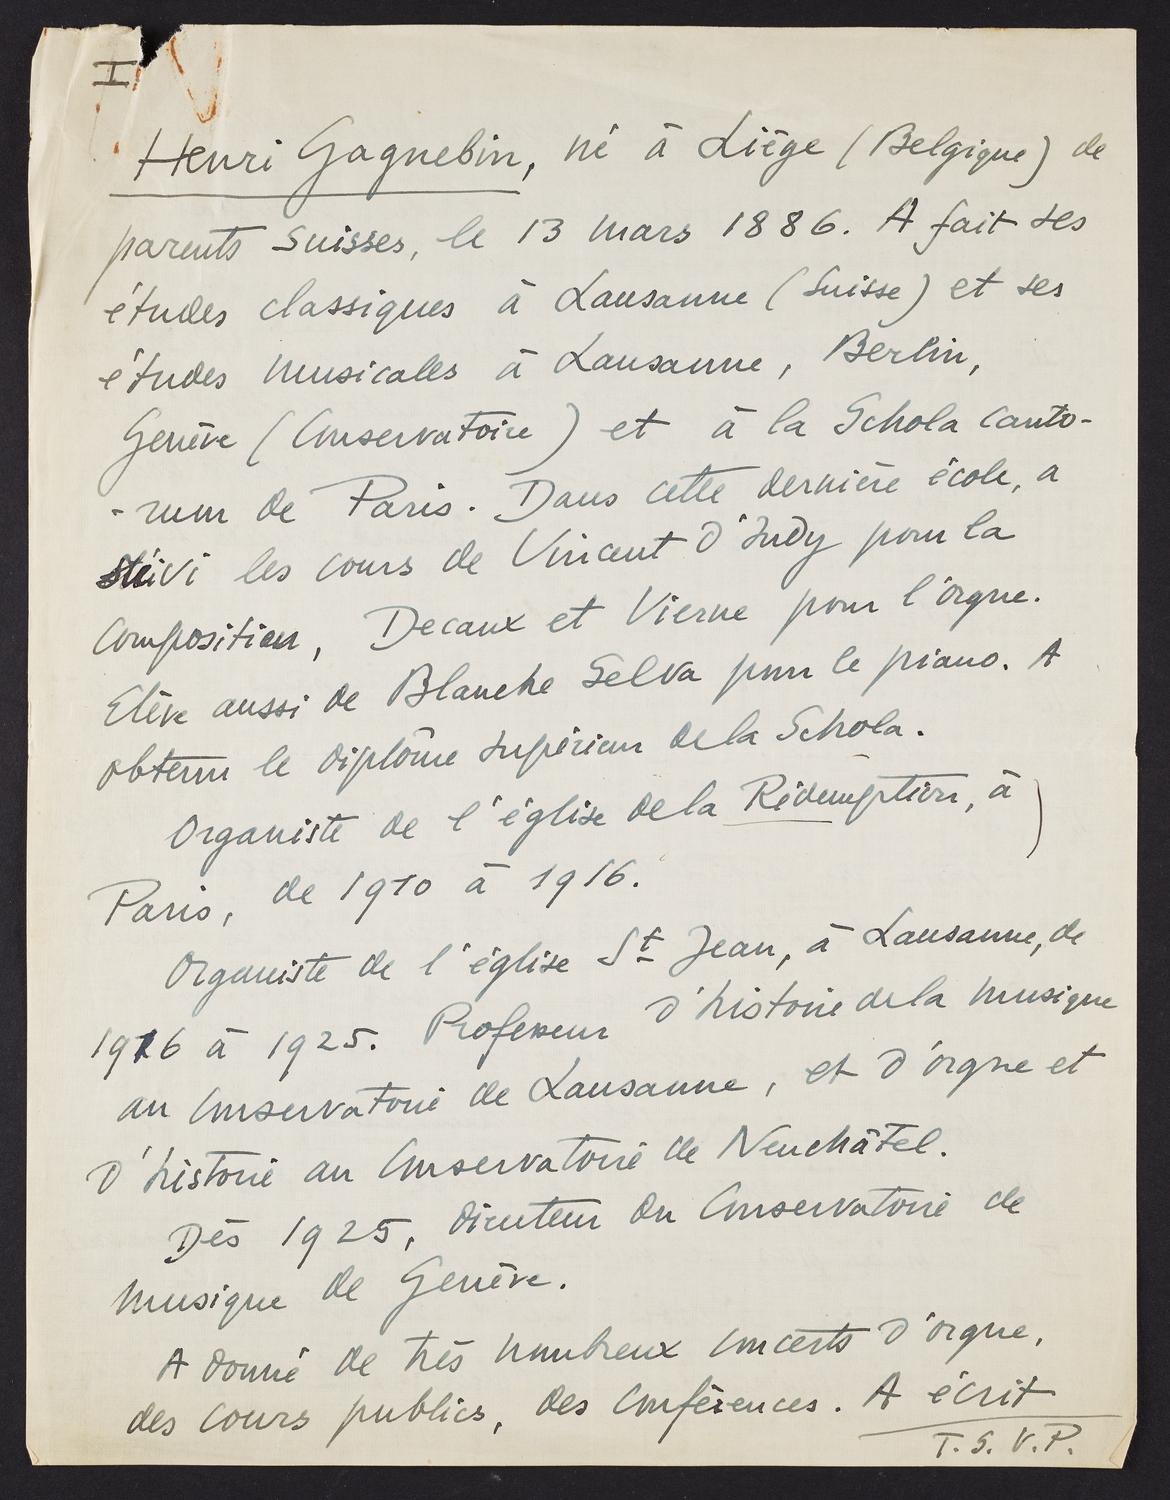 I
Henri Gagnebin, né à Liège (Belgique) de
parents suisses, le 13 mars 1886. A fait ses
études classiques à Lausanne (Suisse) et ses
études musicales à Lausanne, Berlin,
Genève (Conservatoire) et à la Schola canto-
-rum de Paris. Dans cette dernière école, a
suivi les cours de Vincent d'Indy pour la
composition, Decaux et Vierne pour l'orgue.
Elève aussi de Blanche Selva pour le piano. A
obtenu le diplôme supérieur de la Schola.
Organiste de l'église de la Rédemption, à
Paris, de 1910 à 1916.
Organiste de l'église St Jean, à Lausanne, de
1916 à 1925. Professeur d'histoire de la musique
au Conservatoire de Lausanne, et d'orgue et
d'histoire au Conservatoire de Neuchâtel.
Dès 1925, directeur du Conservatoire de
musique de Genève.
A donné de très nombreux concerts d'orgue,
des cours publics, des conférences. A écrit
T. S. V. P.